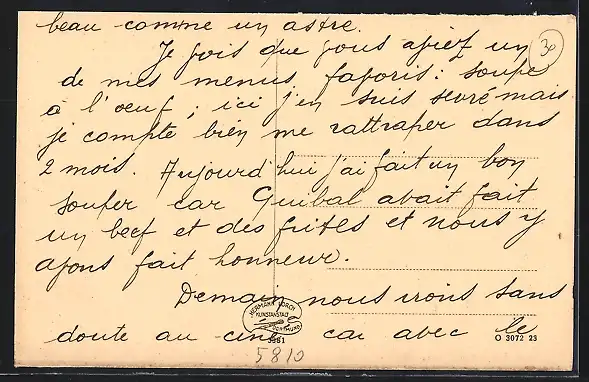 beau comme un astre.
Je vois que vous aviez un
30
de mes menus favoris : soupe
à l'oeuf ; ici j'en suis sevré mais
je compte bien me rattraper dans
2 mois. Aujourd'hui j'ai fait un bon
souper car Guibal avait fait
un beef et des frites et nous y
avons fait honneur.
Demain nous irons sans
HERMANN LORCH
KUNSTANSTALT
DORTMUND
doute au ciné car avec le
3981
O 3072 23
5810